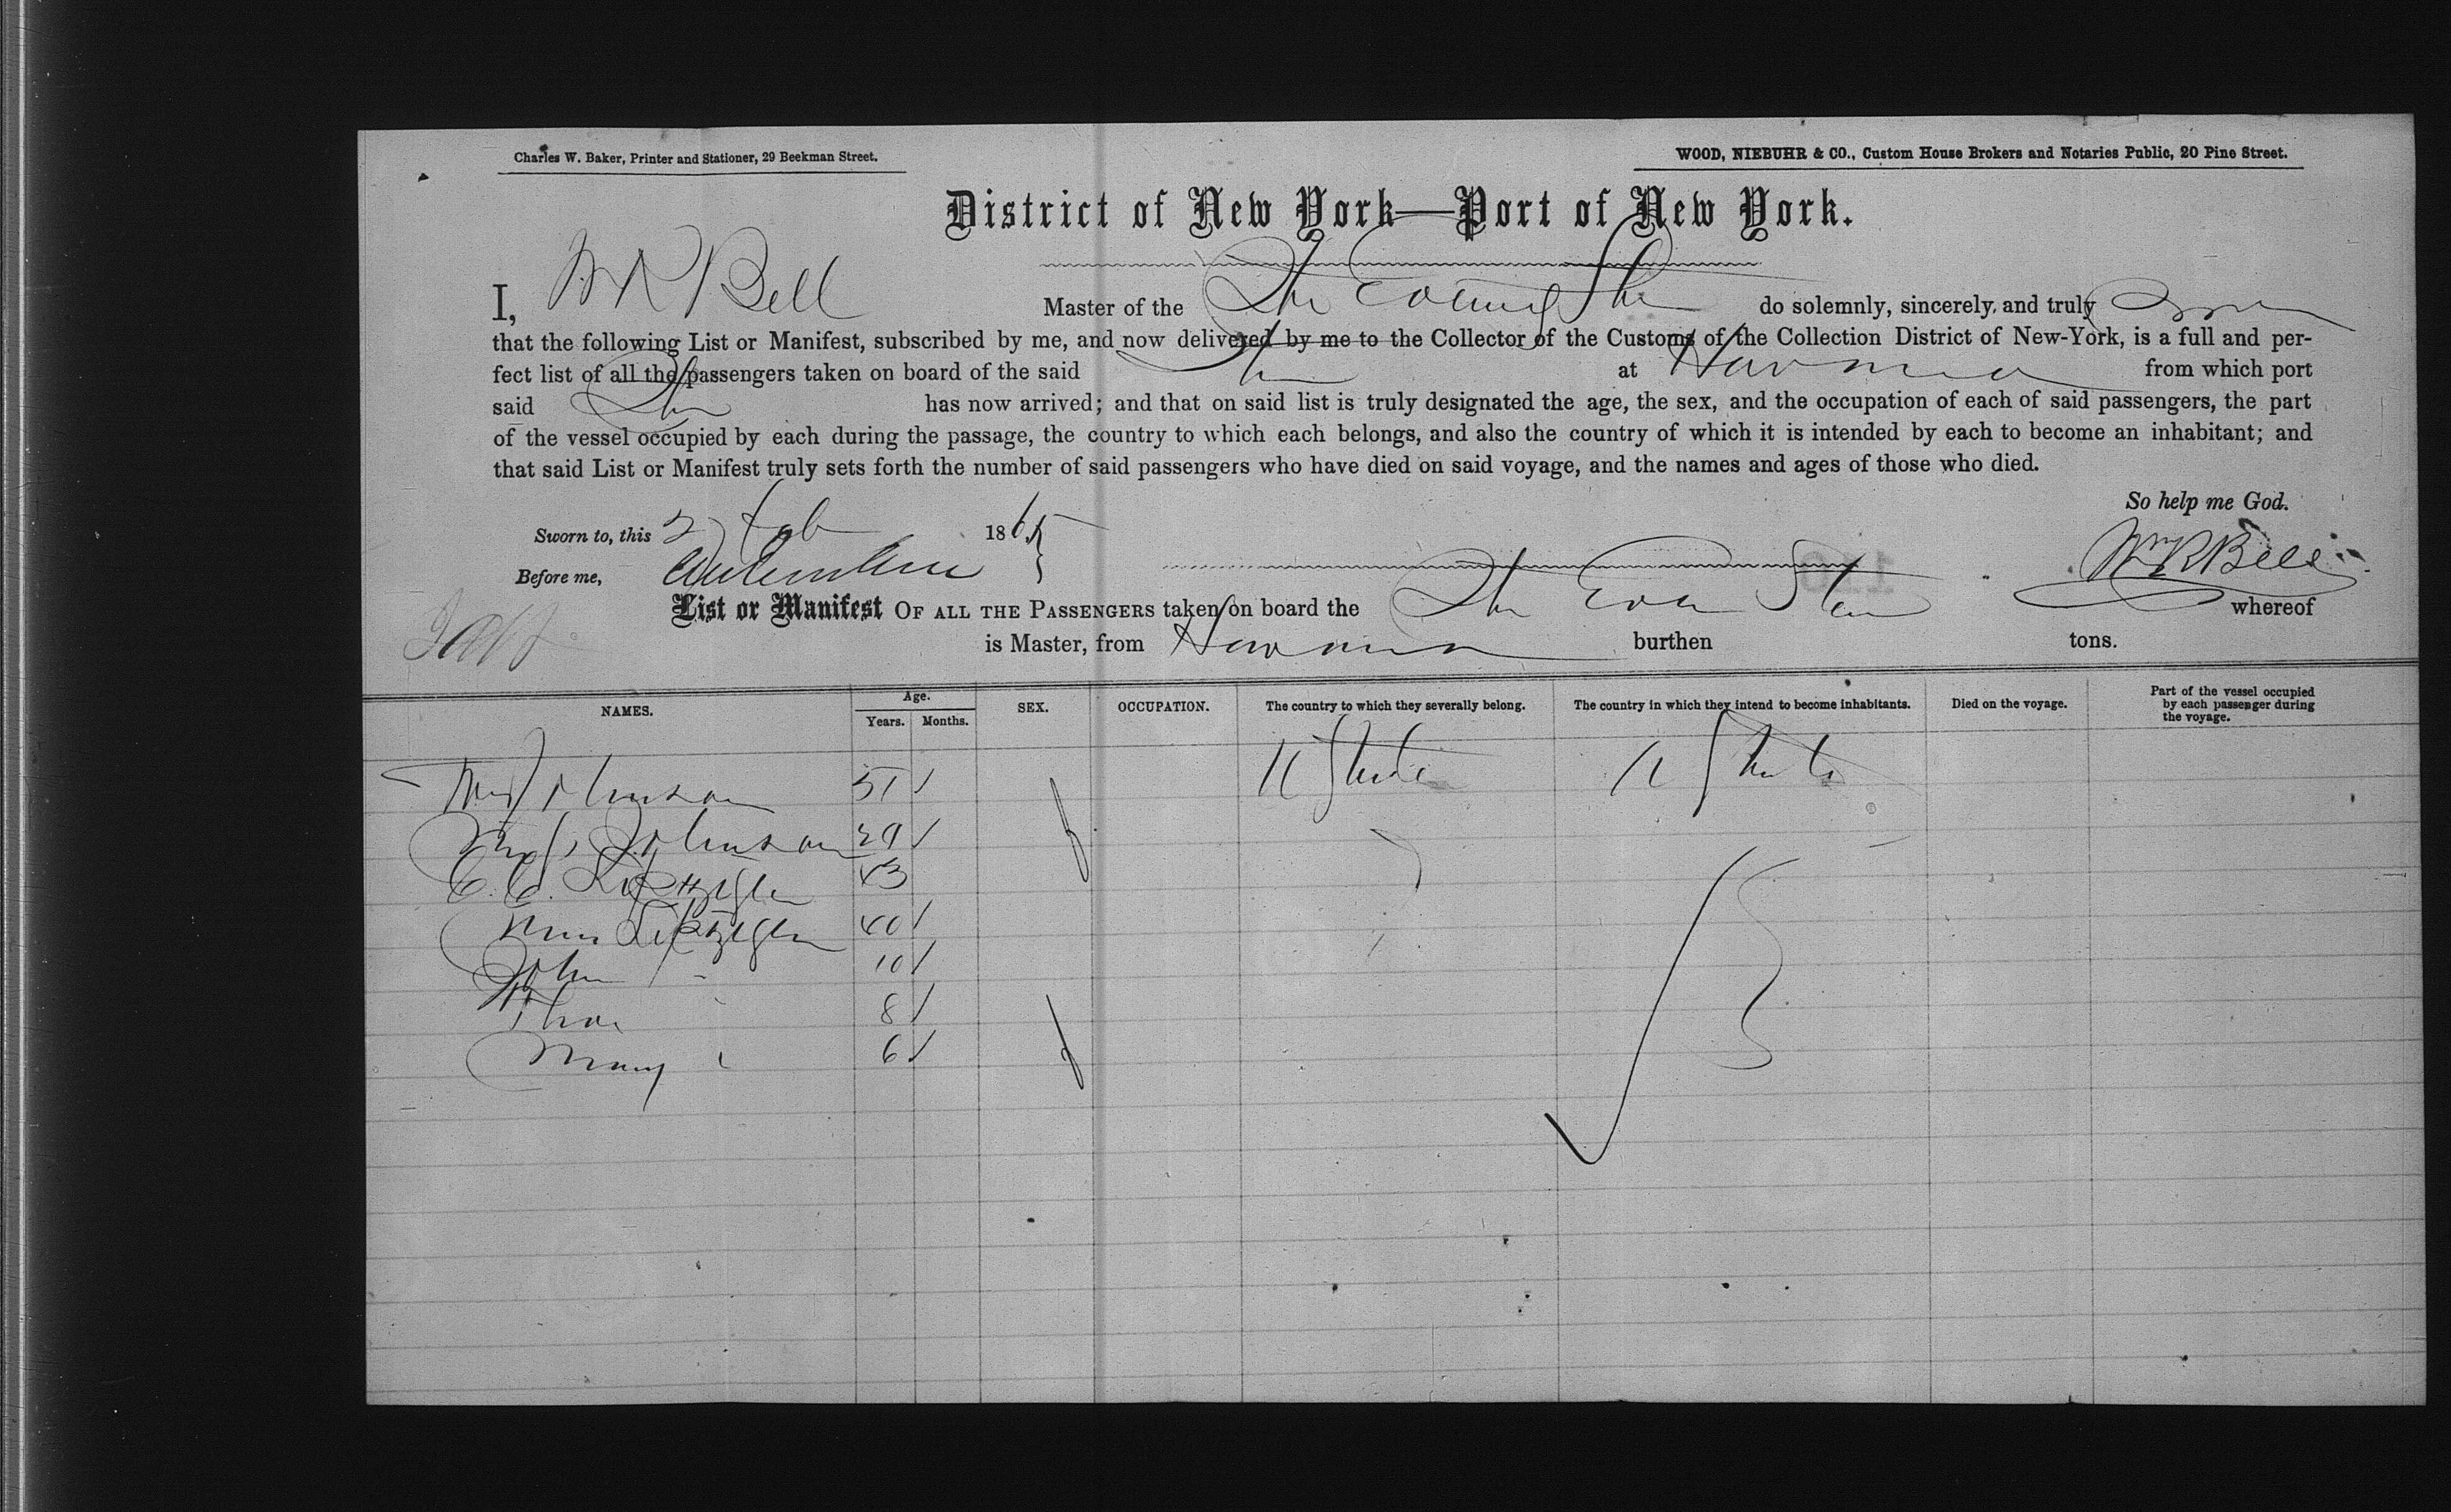 Charles W. Baker, Printer and Stationer, 29 Beekman Street.
WOOD, NIEBUHR & CO., Custom House Brokers and Notaries Public, 20 Pine Street.
District of New York—Port of New York.
I, W R Bell Master of the Str Evening Star do solemnly, sincerely, and truly
that the following List or Manifest, subscribed by me, and now delivered by me to the Collector of the Customs of the Collection District of New-York, is a full and per-
fect list of all the passengers taken on board of the said Str at Havana from which port
said Str has now arrived; and that on said list is truly designated the age, the sex, and the occupation of each of said passengers, the part
of the vessel occupied by each during the passage, the country to which each belongs, and also the country of which it is intended by each to become an inhabitant; and
that said List or Manifest truly sets forth the number of said passengers who have died on said voyage, and the names and ages of those who died.
So help me God.
Sworn to, this 2 Feb 1865
Before me,
Wm R Bell
List or Manifest OF ALL THE PASSENGERS taken on board the Str Eve Star whereof
is Master, from Havana burthen tons.
NAMES. Age. Years. Months. SEX. OCCUPATION. The country to which they severally belong. The country in which they intend to become inhabitants. Died on the voyage. Part of the vessel occupied by each passenger during the voyage.
Johnson 51 U States U States
Mrs Johnson 29
C. C. 43
Mrs 40
John 10
Thos 8
Mary 6